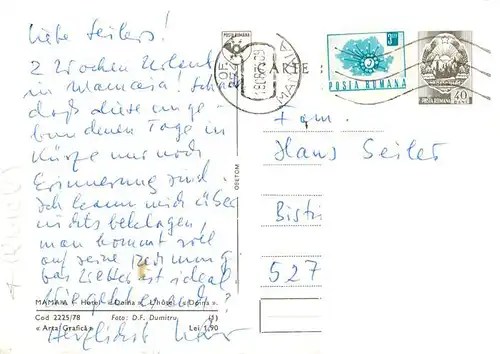 Liebe Seilers!
2 Wochen Urlaub
in Mamaia! Schade
daß diese unge-
bundenen Tage in
Kürze nur noch
Erinnerung sind
Ich kann mich über
nichts beklagen,
man kommt voll
auf seine Rechnung
das Wetter ist ideal.
Herzlichst
MAMAIA – Hotel « Doina ». L'hôtel « Doina ».
Cod 2225/78
Foto: D.F. Dumitru
(5)
« Arta Grafică »
Lei 1,90
OFSETCOM
POSTA ROMANA
CARTE
MAMAIA
POSTA ROMANA
POSTA ROMANA
40
BANI
Fam.
Hans Seiler
Bistri
527